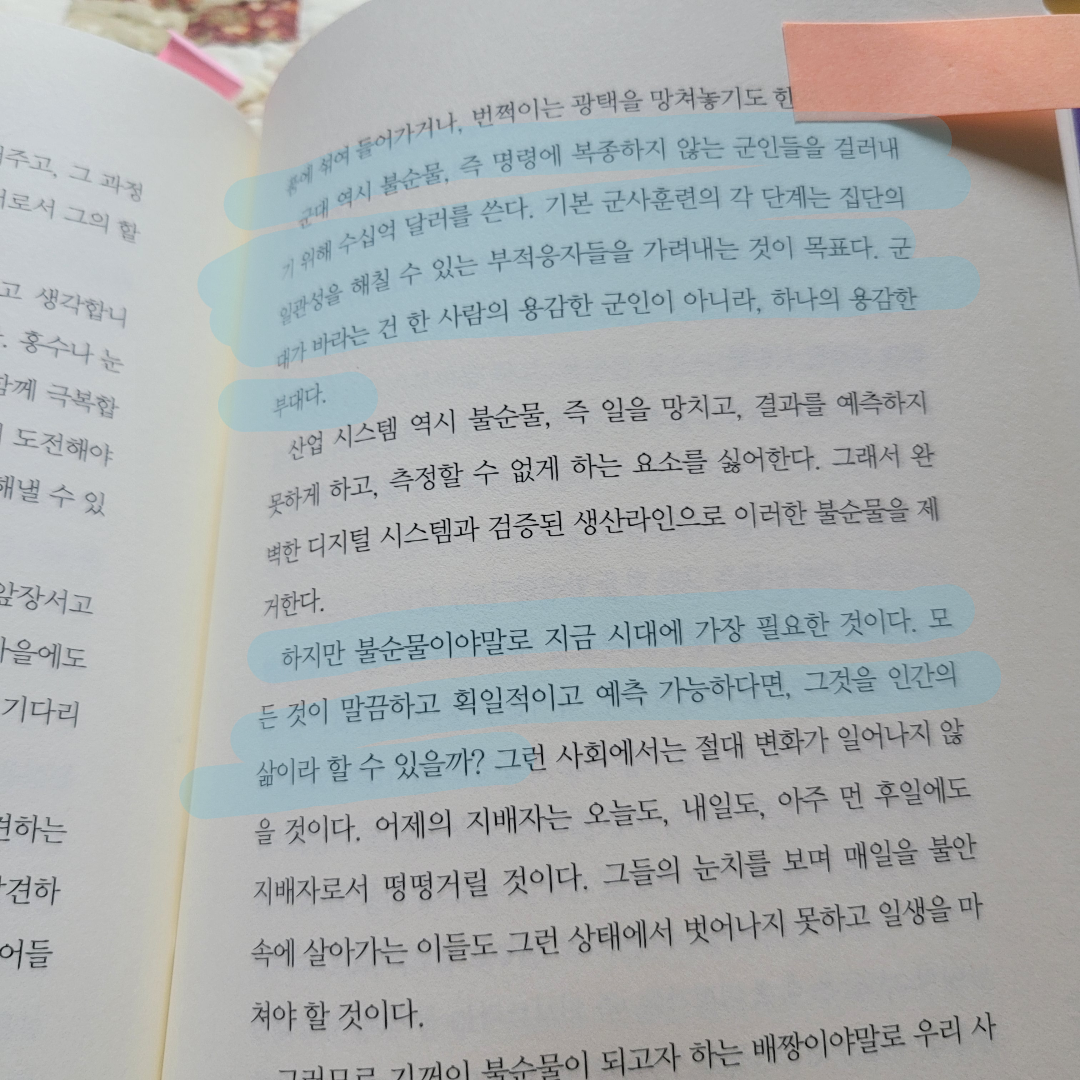 해주고, 그 과정
로서 그의 할
고 생각합니
홍수나 눈
함께 극복합
도전해야
해낼 수 있
앞장서고
마을에도
기다리
견하는
발견하
어들
흙에 섞여 들어가거나, 번쩍이는 광택을 망쳐놓기도 한
군대 역시 불순물, 즉 명령에 복종하지 않는 군인들을 걸러내
기 위해 수십억 달러를 쓴다. 기본 군사훈련의 각 단계는 집단의
일관성을 해칠 수 있는 부적응자들을 가려내는 것이 목표다. 군
대가 바라는 건 한 사람의 용감한 군인이 아니라, 하나의 용감한
부대다.
산업 시스템 역시 불순물, 즉 일을 망치고, 결과를 예측하지
못하게 하고, 측정할 수 없게 하는 요소를 싫어한다. 그래서 완
벽한 디지털 시스템과 검증된 생산라인으로 이러한 불순물을 제
거한다.
하지만 불순물이야말로 지금 시대에 가장 필요한 것이다. 모
든 것이 말끔하고 획일적이고 예측 가능하다면, 그것을 인간의
삶이라 할 수 있을까? 그런 사회에서는 절대 변화가 일어나지 않
을 것이다. 어제의 지배자는 오늘도, 내일도, 아주 먼 후일에도
지배자로서 떵떵거릴 것이다. 그들의 눈치를 보며 매일을 불안
속에 살아가는 이들도 그런 상태에서 벗어나지 못하고 일생을 마
쳐야 할 것이다.
그러므로 기꺼이 불순물이 되고자 하는 배짱이야말로 우리 사